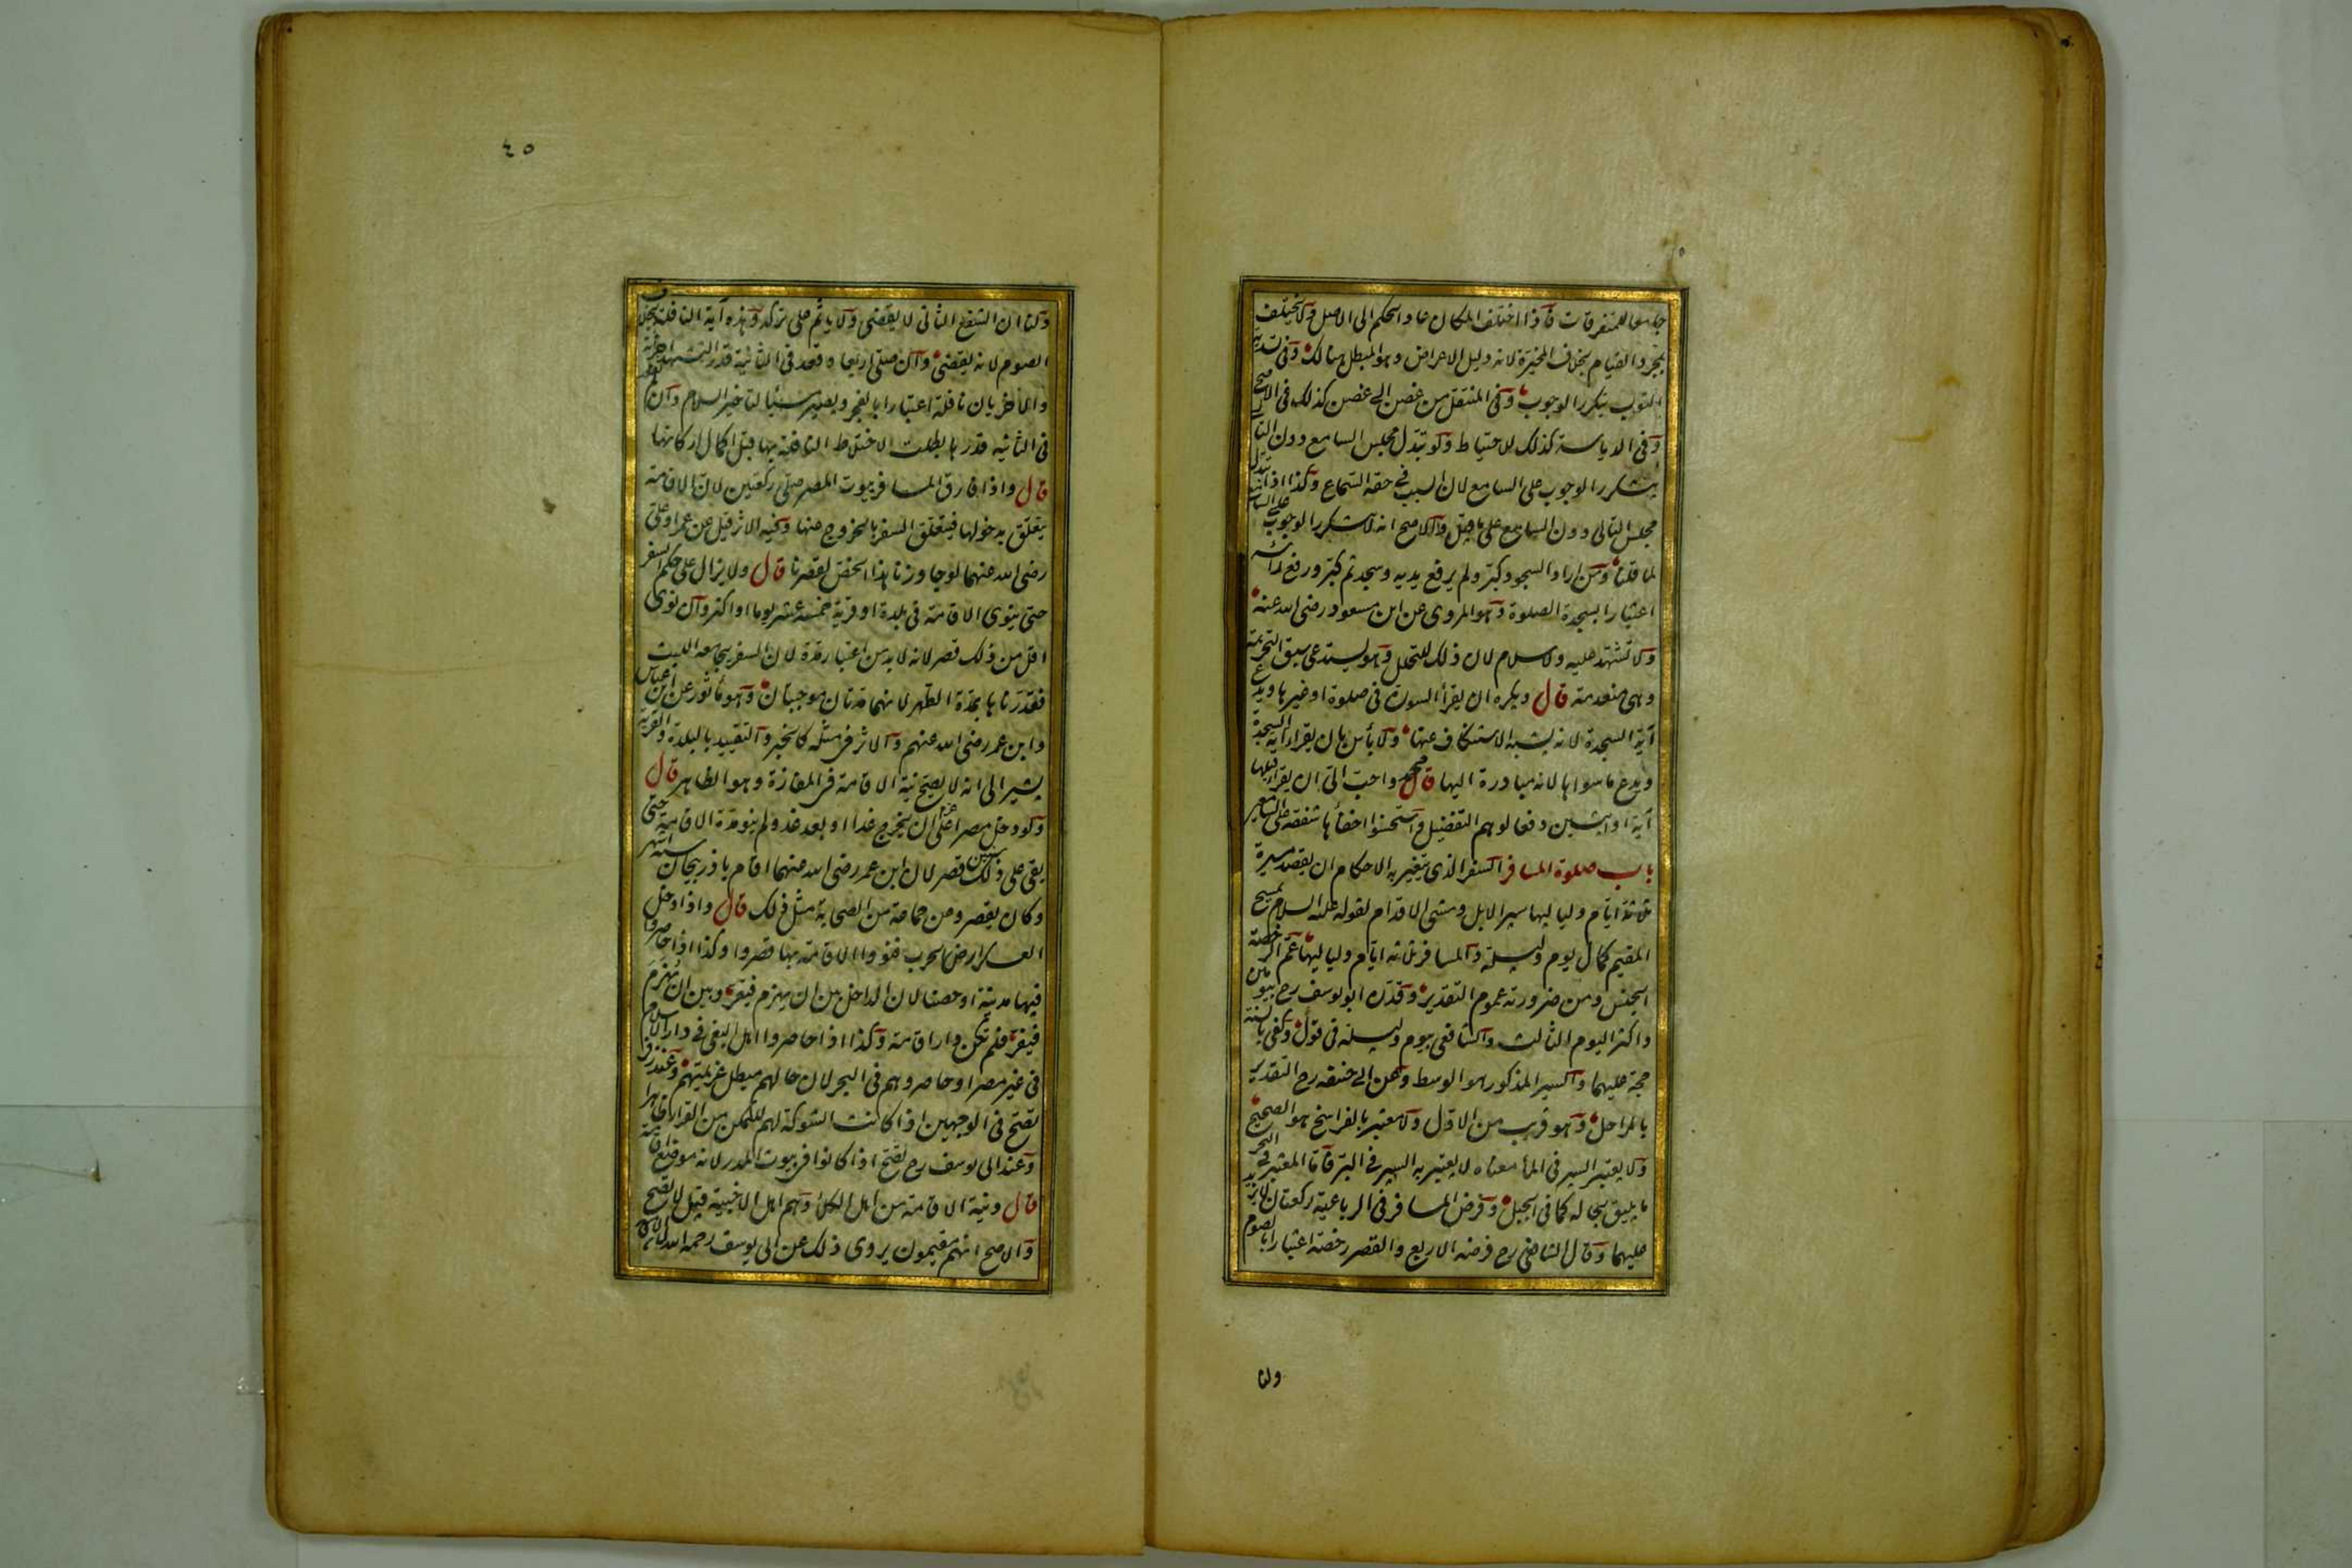 جامعا للمتفرقات فاذا اختلف المكان عاد الحكم الى الاصل ولا يختلف
بمجرد القيام بخلاف المخيرة لانه دليل الاعراض وهو المبطل هنالك وفى تسدية
الثوب يتكرر الوجوب وفى المنتقل من غصن الى غصن كذلك فى الاصح
وفى الدياسة كذلك للاحتياط ولو تبدل مجلس السامع دون التالى
يتكرر الوجوب على السامع لان السبب فى حقه السماع وكذا اذا تبدل
مجلس التالى دون السامع على ما قيل والاصح انه لا يتكرر الوجوب على السامع
لما قلنا ومن اراد السجود كبر ولم يرفع يديه وسجد ثم كبر ورفع رأسه
اعتبارا بسجدة الصلوة وهو المروى عن ابن مسعود رضى الله عنه
ولا تشهد عليه ولا سلام لان ذلك للتحلل وهو يستدعى سبق التحريمة
وهى منعدمة قال ويكره ان يقرأ السورة فى صلوة او غيرها ويدع
آية السجدة لانه يشبه الاستنكاف عنها ولا بأس بان يقرأ آية السجدة
ويدع ما سواها لانه مبادرة اليها قال محمد واحب الى ان يقرأ قبلها
آية او آيتين دفعا لوهم التفضيل واستحسنوا اخفأها شفقة على السامعين
باب صلوة المسافر السفر الذى يتغير به الاحكام ان يقصد مسيرة
ثلثة ايام ولياليها سير الابل ومشى الاقدام لقوله عليه السلام يمسح
المقيم كمال يوم وليلة والمسافر ثلثة ايام ولياليها عم الرخصة
الجنس ومن ضرورته عموم التقدير وقدره ابو يوسف رح بيومين
واكثر اليوم الثالث والشافعى بيوم وليلة فى قول وكفى بالسنة
حجة عليهما والسير المذكور هو الوسط وعن ابى حنيفة رح التقدير
بالمراحل وهو قريب من الاول ولا معتبر بالفراسخ هو الصحيح
ولا يعتبر السير فى الماء معناه لا يعتبر به السير فى البر فاما المعتبر فى البحر
ما يليق بحاله كما فى الجبل وفرض المسافر فى الرباعية ركعتان لا يزيد
عليهما وقال الشافعى رح فرضه الاربع والقصر رخصة اعتبارا بالصوم
ولنا
٤٥
ولنا ان الشفع الثانى لا يقضى ولا يأثم على تركه وهذه آية النافلة بخلاف
الصوم لانه يقضى وان صلى اربعا وقعد فى الثانية قدر التشهد اجزأته
والاخريان نافلة اعتبارا بالفجر ويصير مسيئا لتأخير السلام وان لم يقعد
فى الثانية قدرها بطلت لاختلاط النافلة بها قبل اكمال اركانها
قال واذا فارق المسافر بيوت المصر صلى ركعتين لان الاقامة
يتعلق بدخولها فيتعلق السفر بالخروج عنها وفيه الاثر قيل عن عمر او على
رضى الله عنهما لو جاوزنا هذا الخص لقصرنا قال ولا يزال على حكم السفر
حتى ينوى الاقامة فى بلدة او قرية خمسة عشر يوما او اكثر وان نوى
اقل من ذلك قصر لانه لا بد من اعتبار مدة لان السفر يجامعه اللبث
فقدرناها بمدة الطهر لانهما مدتان موجبتان وهو مأثور عن ابن عباس
وابن عمر رضى الله عنهم والاثر فى مثله كالخبر والتقييد بالبلدة والقرية
يشير الى انه لا يصح نية الاقامة فى المفازة وهو الظاهر قال
ولو دخل مصرا على عزم ان يخرج غدا او بعد غد ولم ينو مدة الاقامة حتى
بقى على ذلك سنين قصر لان ابن عمر رضى الله عنهما اقام باذربيجان ستة اشهر
وكان يقصر وعن جماعة من الصحابة مثل ذلك قال واذا دخل
العسكر ارض الحرب فنووا الاقامة بها قصروا وكذا اذا حاصروا
فيها مدينة او حصنا لان الداخل بين ان يهزم فيقر وبين ان ينهزم
فيفر فلم تكن دار اقامة وكذا اذا حاصروا اهل البغى فى دار الاسلام
فى غير مصر او حاصروهم فى البحر لان حالهم مبطل عزيمتهم وعند زفر
تصح فى الوجهين اذا كانت الشوكة لهم للتمكن من القرار ظاهرا
وعند ابى يوسف رح تصح اذا كانوا فى بيوت المدر لانه موضع اقامة
قال ونية الاقامة من اهل الكلأ وهم اهل الاخبية قيل لا تصح
والاصح انهم مقيمون يروى ذلك عن ابى يوسف رحمه الله لان